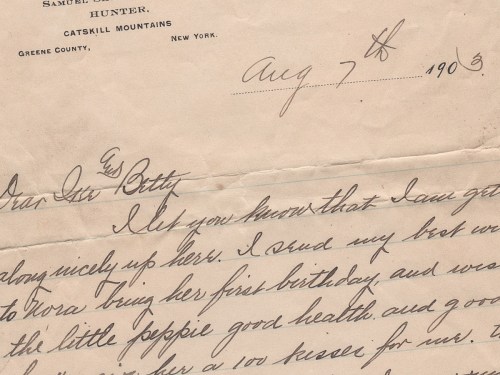 SAMUEL
HUNTER,
CATSKILL MOUNTAINS
GREENE COUNTY, NEW YORK.
Aug 7th 1903.
Dear Ike and Betty
I let you know that I am get
along nicely up here. I send my best wi
to Nora being her first birthday, and wis
the little peppie good health and good
her a 100 kisses for me.